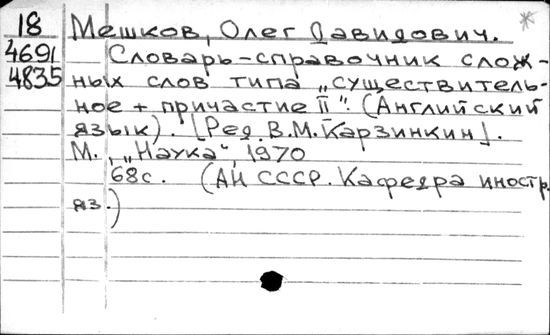 18 Мешков, Олег Давидович.
4691 Словарь-справочник слож-
4835 ных слов типа „существитель-
ное + причастие II". (Английский
язык). [Ред. В.М. Карзинкин].
М., „Наука", 1970
68с. (АН СССР. Кафедра иностр.
яз.)